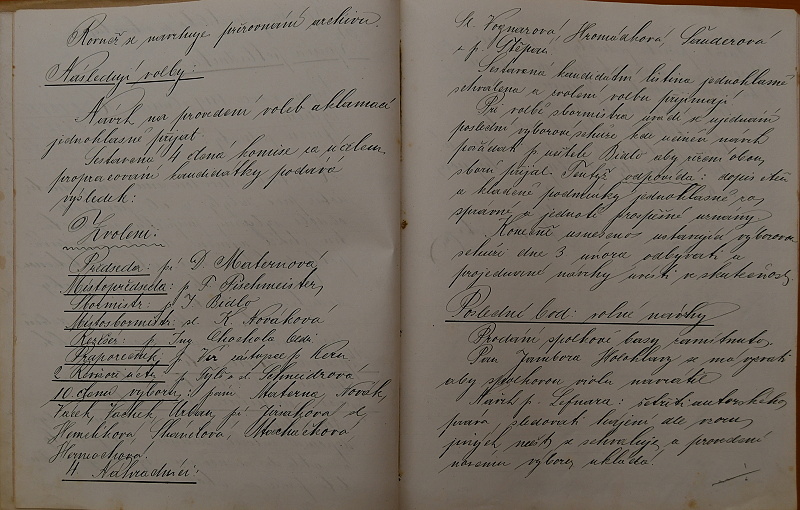 Rovněž se navrhuje přirovnání archivu.
Následují volby:
Návrh na provedení voleb aklamací
jednohlasně přijat.
Sestavena 4 členná komise za účelem
propracování kandidátky podává
výsledek:
Zvoleni:
Předseda: pí D. Maternová
Místopředseda: p. F. Fischmeister
Sbormistr: p. J. Bidlo
Místosbormistr: sl. K. Nováková
p. Ing. Chochola
Praporečník: p. zástupce p. Kern
2 Revisoři účtů: p. a sl. Schneidrová
10 členů výboru: páni Materna, Novák,
Vacek, Jachek, Urban, pí sl.
Homolková, Skančlová, Macháčková
4 Náhradníci:
Sl. Voznarová, Hromádková, Šauderová
a p. Štěpán.
Sestavená kandidátní listina jednohlasně
schválena a zvolení volbu přijmají.
Při volbě sbormistra uvádí se ujednání
poslední výborové schůze kde učiněn návrh
požádat p. učitele Bidlo aby řízení obou
sborů přijal. Tentýž odpovídá: dopis čten
a kladené podmínky jednohlasně za
správné a jednotě prospěšné uznány.
Konečně usneseno ustavující výborovou
schůzi dne 3 února odbývati a
projednané návrhy uvésti v skutečnost.
Poslední bod: volné návrhy
Prodání spolkové basy zamítnuto.
Pan Jambora Holohlavy se má vyzvati
aby spolkovou violu navrátil.
Návrh p. Lefnara: šetřiti autorského
práva sledovati hájení dle vzoru
jiných měst se schvaluje a provedení
novému výboru ukládá.